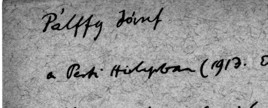 Pálffy József
a Pesti Hirlapban (1913. D